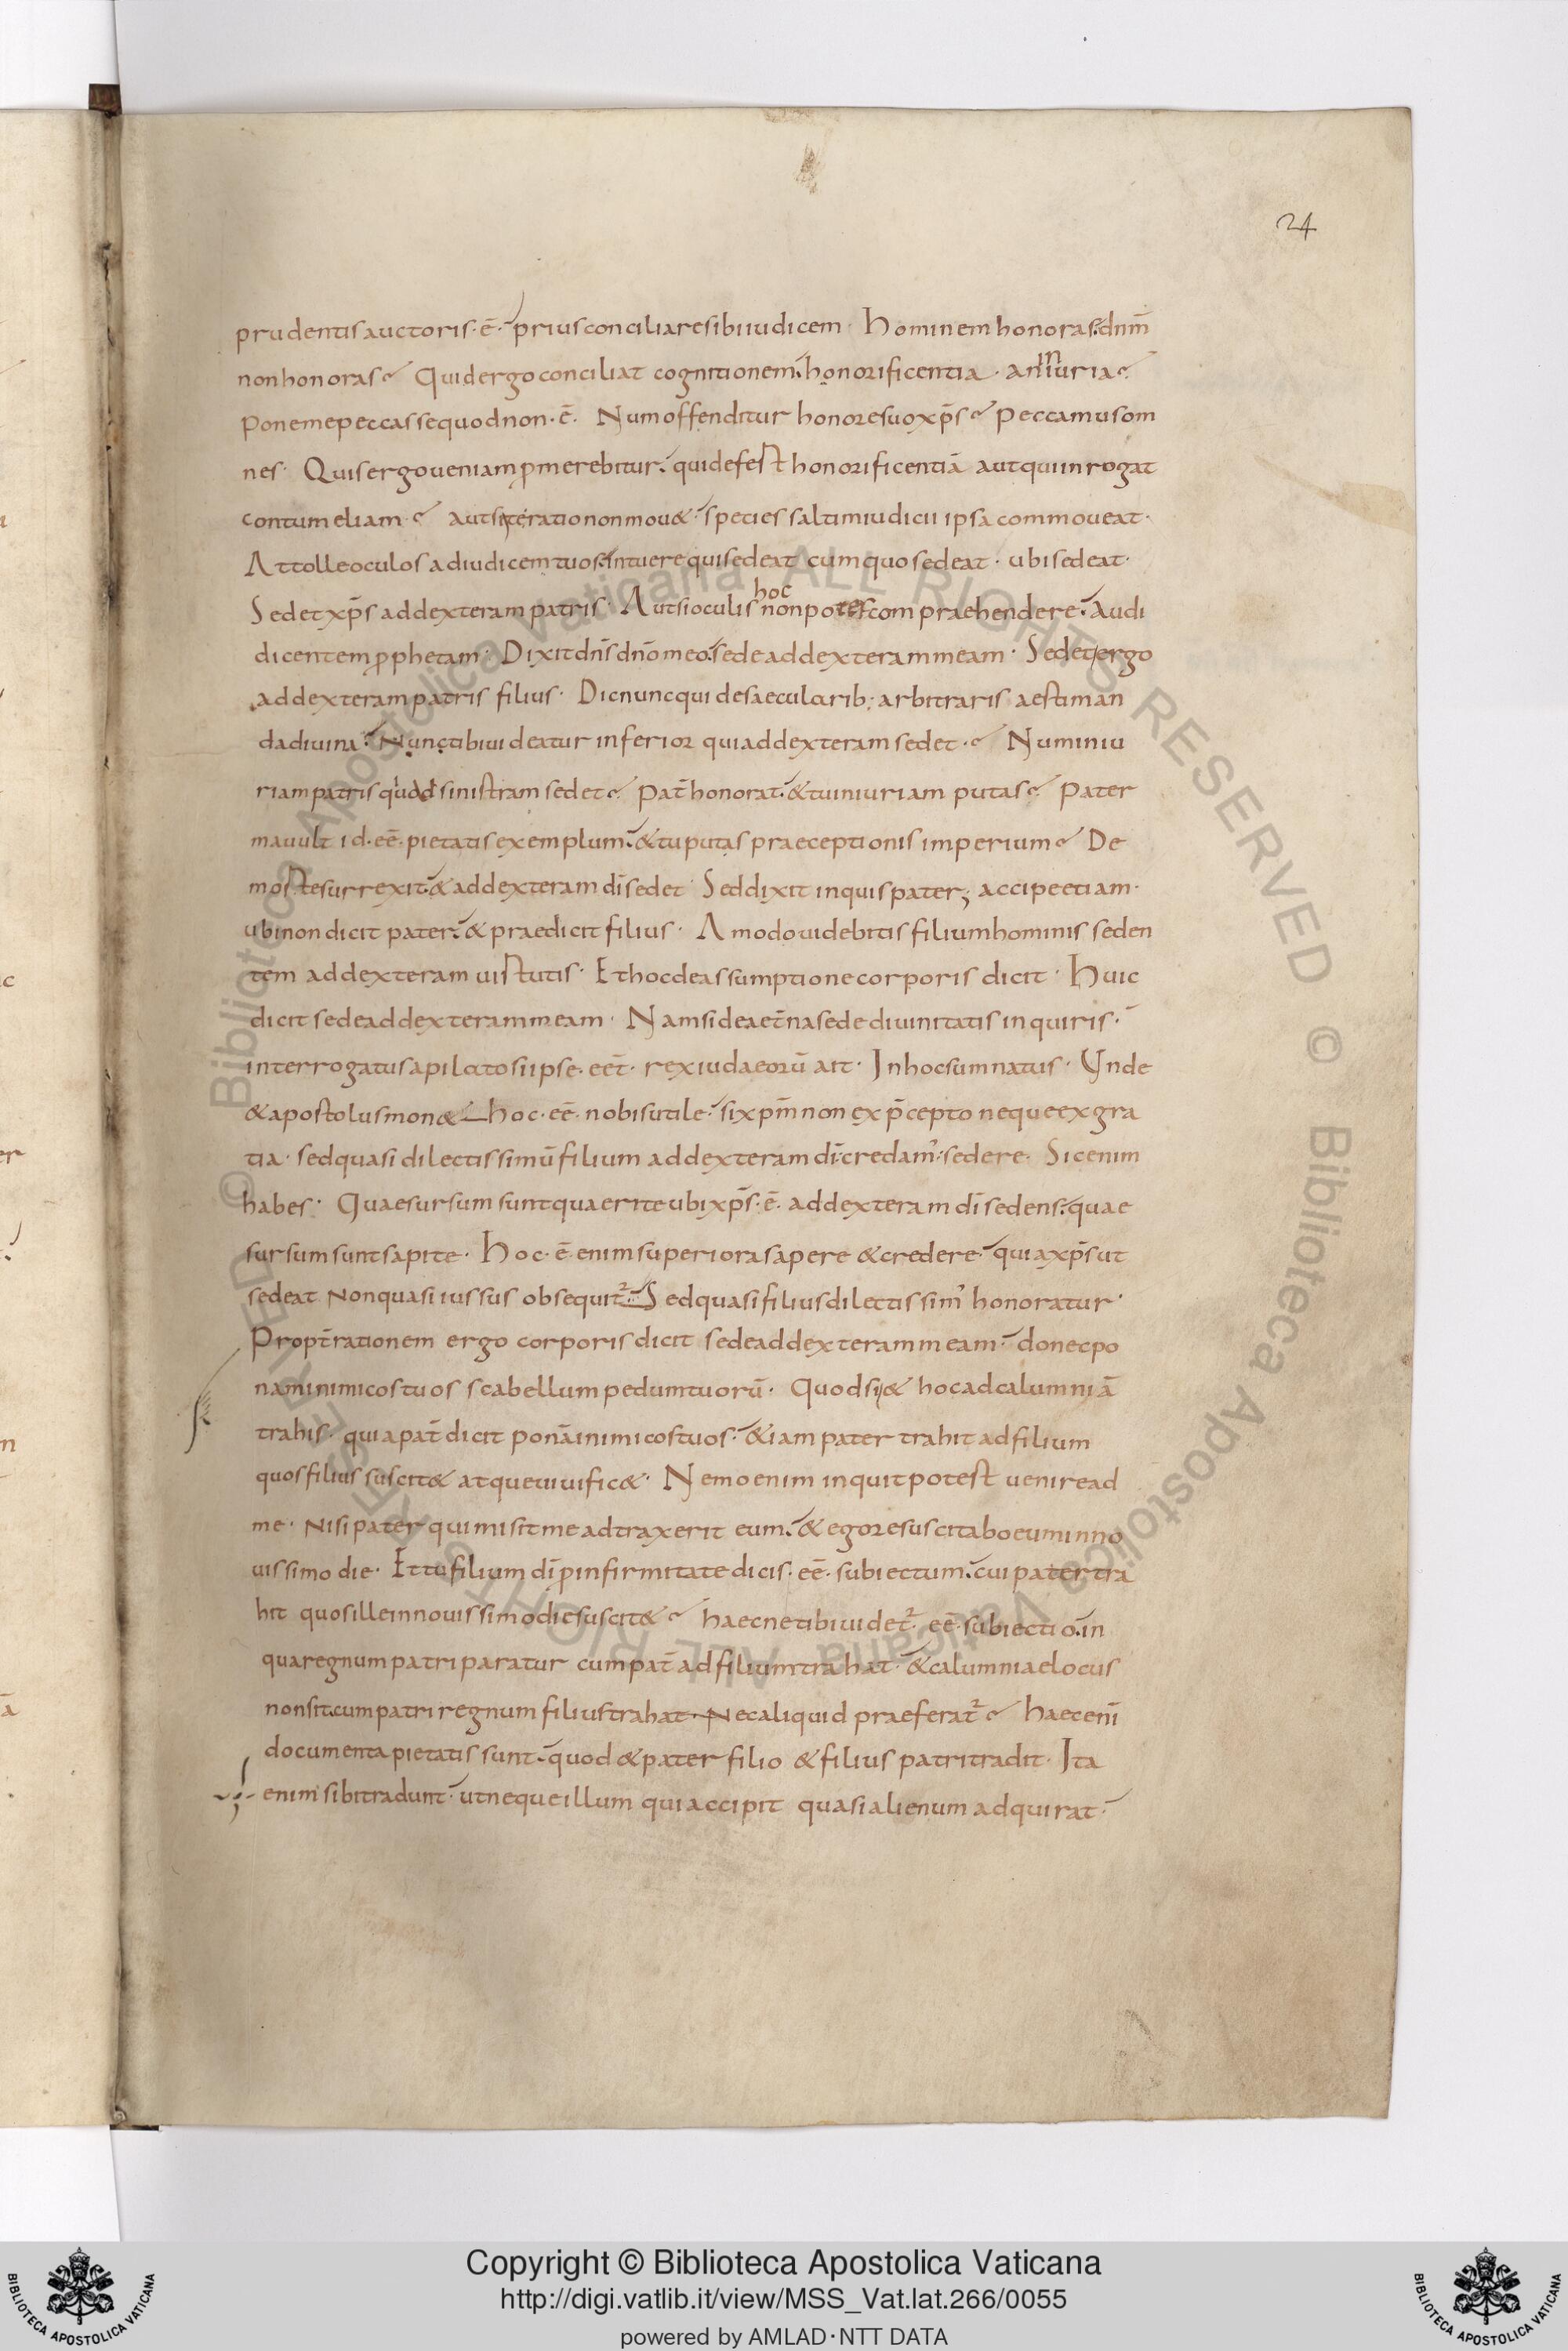 24
prudentis auctoris · ē · prius conciliare sibi iudicem · Hominem honoras · dnm̄
non honoras? Quid ergo conciliat cognitionem · honorificentia · an iniuria?
Pone me peccasse quod non · ē · Num offenditur honore suo xp̄s? Peccamus om
nes · Quis ergo ueniam ꝓmerebitur · qui defert honorificentiā aut qui inrogat
contumeliam? Aut si iteratio non mou& · species saltim iudicii ipsa commoueat ·
Attolle oculos ad iudicem tuos · intuere qui sedeat cum quo sedeat · ubi sedeat ·
hoc
Sedet xp̄s ad dexteram patris · Aut si oculis non potes compraehendere · Audi
dicentem ꝓphetam · Dixit dn̄s dn̄o meo · sede ad dexteram meam · Sedet ergo
ad dexteram patris filius · Dic nunc qui de saecularib; arbitraris aestiman
da diuina · Nunc tibi uideatur inferior qui ad dexteram sedet? Num iniu
riam patris quod ad sinistram sedet? Pat̄ honorat · & tu iniuriam putas? Pater
mauult id · eē · pietatis exemplum · & tu putas praeceptionis imperium? De
morte surrexit · & ad dexteram dī sedet · Sed dixit inquis pater; accipe etiam ·
ubi non dicit pater · & praedicit filius · Amodo uidebitis filium hominis seden
tem ad dexteram uirtutis · Et hoc de assumptione corporis dicit · Huic
dicit sede ad dexteram meam · Nam si de aet̄na sede diuinitatis inquiris ·
interrogatus a pilato si ipse · eēt · rex iudaeorū ait · In hoc sum natus · Vnde
& apostolus mon& hoc · eē · nobis utile · si xpm̄ non ex p̄cepto neque ex gra
tia · sed quasi dilectissimū filium ad dexteram dī · credam' · sedere · Sic enim
habes · Quae sursum sunt quaerite ubi xp̄s · ē · ad dexteram dī sedens · quae
sursum sunt sapite · Hoc · ē enim superiora sapere & credere · quia xp̄s ut
sedeat non quasi iussus obsequit᷑ · Sed quasi filius dilectissim' honoratur ·
Propt̄ rationem ergo corporis dicit sede ad dexteram meam · donec po
nam inimicos tuos scabellum pedum tuorū · Quod si & hoc ad calumniā
trahis · quia pat̄ dicit ponā inimicos tuos · & iam pater trahit ad filium
quos filius suscit& atque uiuific& · Nemo enim inquit potest uenire ad
me · Nisi pater qui misit me adtraxerit eum · & ego resuscitabo eum in no
uissimo die · Et tu filium dī ꝓ infirmitate dicis · eē · subiectum · cui pater tra
hit quos ille in nouissimo die suscit&? haecne tibi uidet᷑ · eē · subiectio · in
qua regnum patri paratur cum pat̄ ad filium trahat · & calumniae locus
non sit · cum patri regnum filius trahat · Nec aliquid praeferat᷑? haec enī
documenta pietatis sunt · quod & pater filio & filius patri tradit · Ita
enim sibi tradunt · ut neque illum qui accipit quasi alienum adquirat ·
© Biblioteca Apostolica Vaticana ALL RIGHTS RESERVED
© Biblioteca Apostolica Vaticana ALL RIGHTS RESERVED
BIBLIOTECA APOSTOLICA VATICANA
Copyright © Biblioteca Apostolica Vaticana
http://digi.vatlib.it/view/MSS_Vat.lat.266/0055
powered by AMLAD·NTT DATA
BIBLIOTECA APOSTOLICA VATICANA